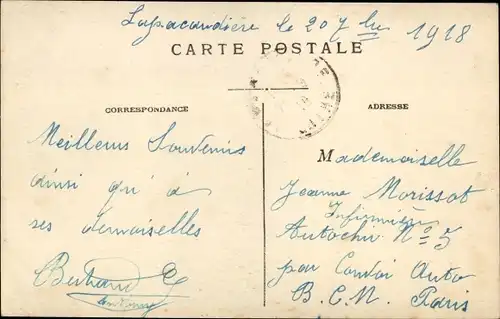 Lapacaudière le 20 7bre 1918
CARTE POSTALE
CORRESPONDANCE
ADRESSE
Meilleurs Souvenirs
ainsi qu'à
ses demoiselles
Bertrand
Mademoiselle
Jeanne Morissot
Infirmière
Autochir No 5
par Convoi Auto
B.C.M. Paris